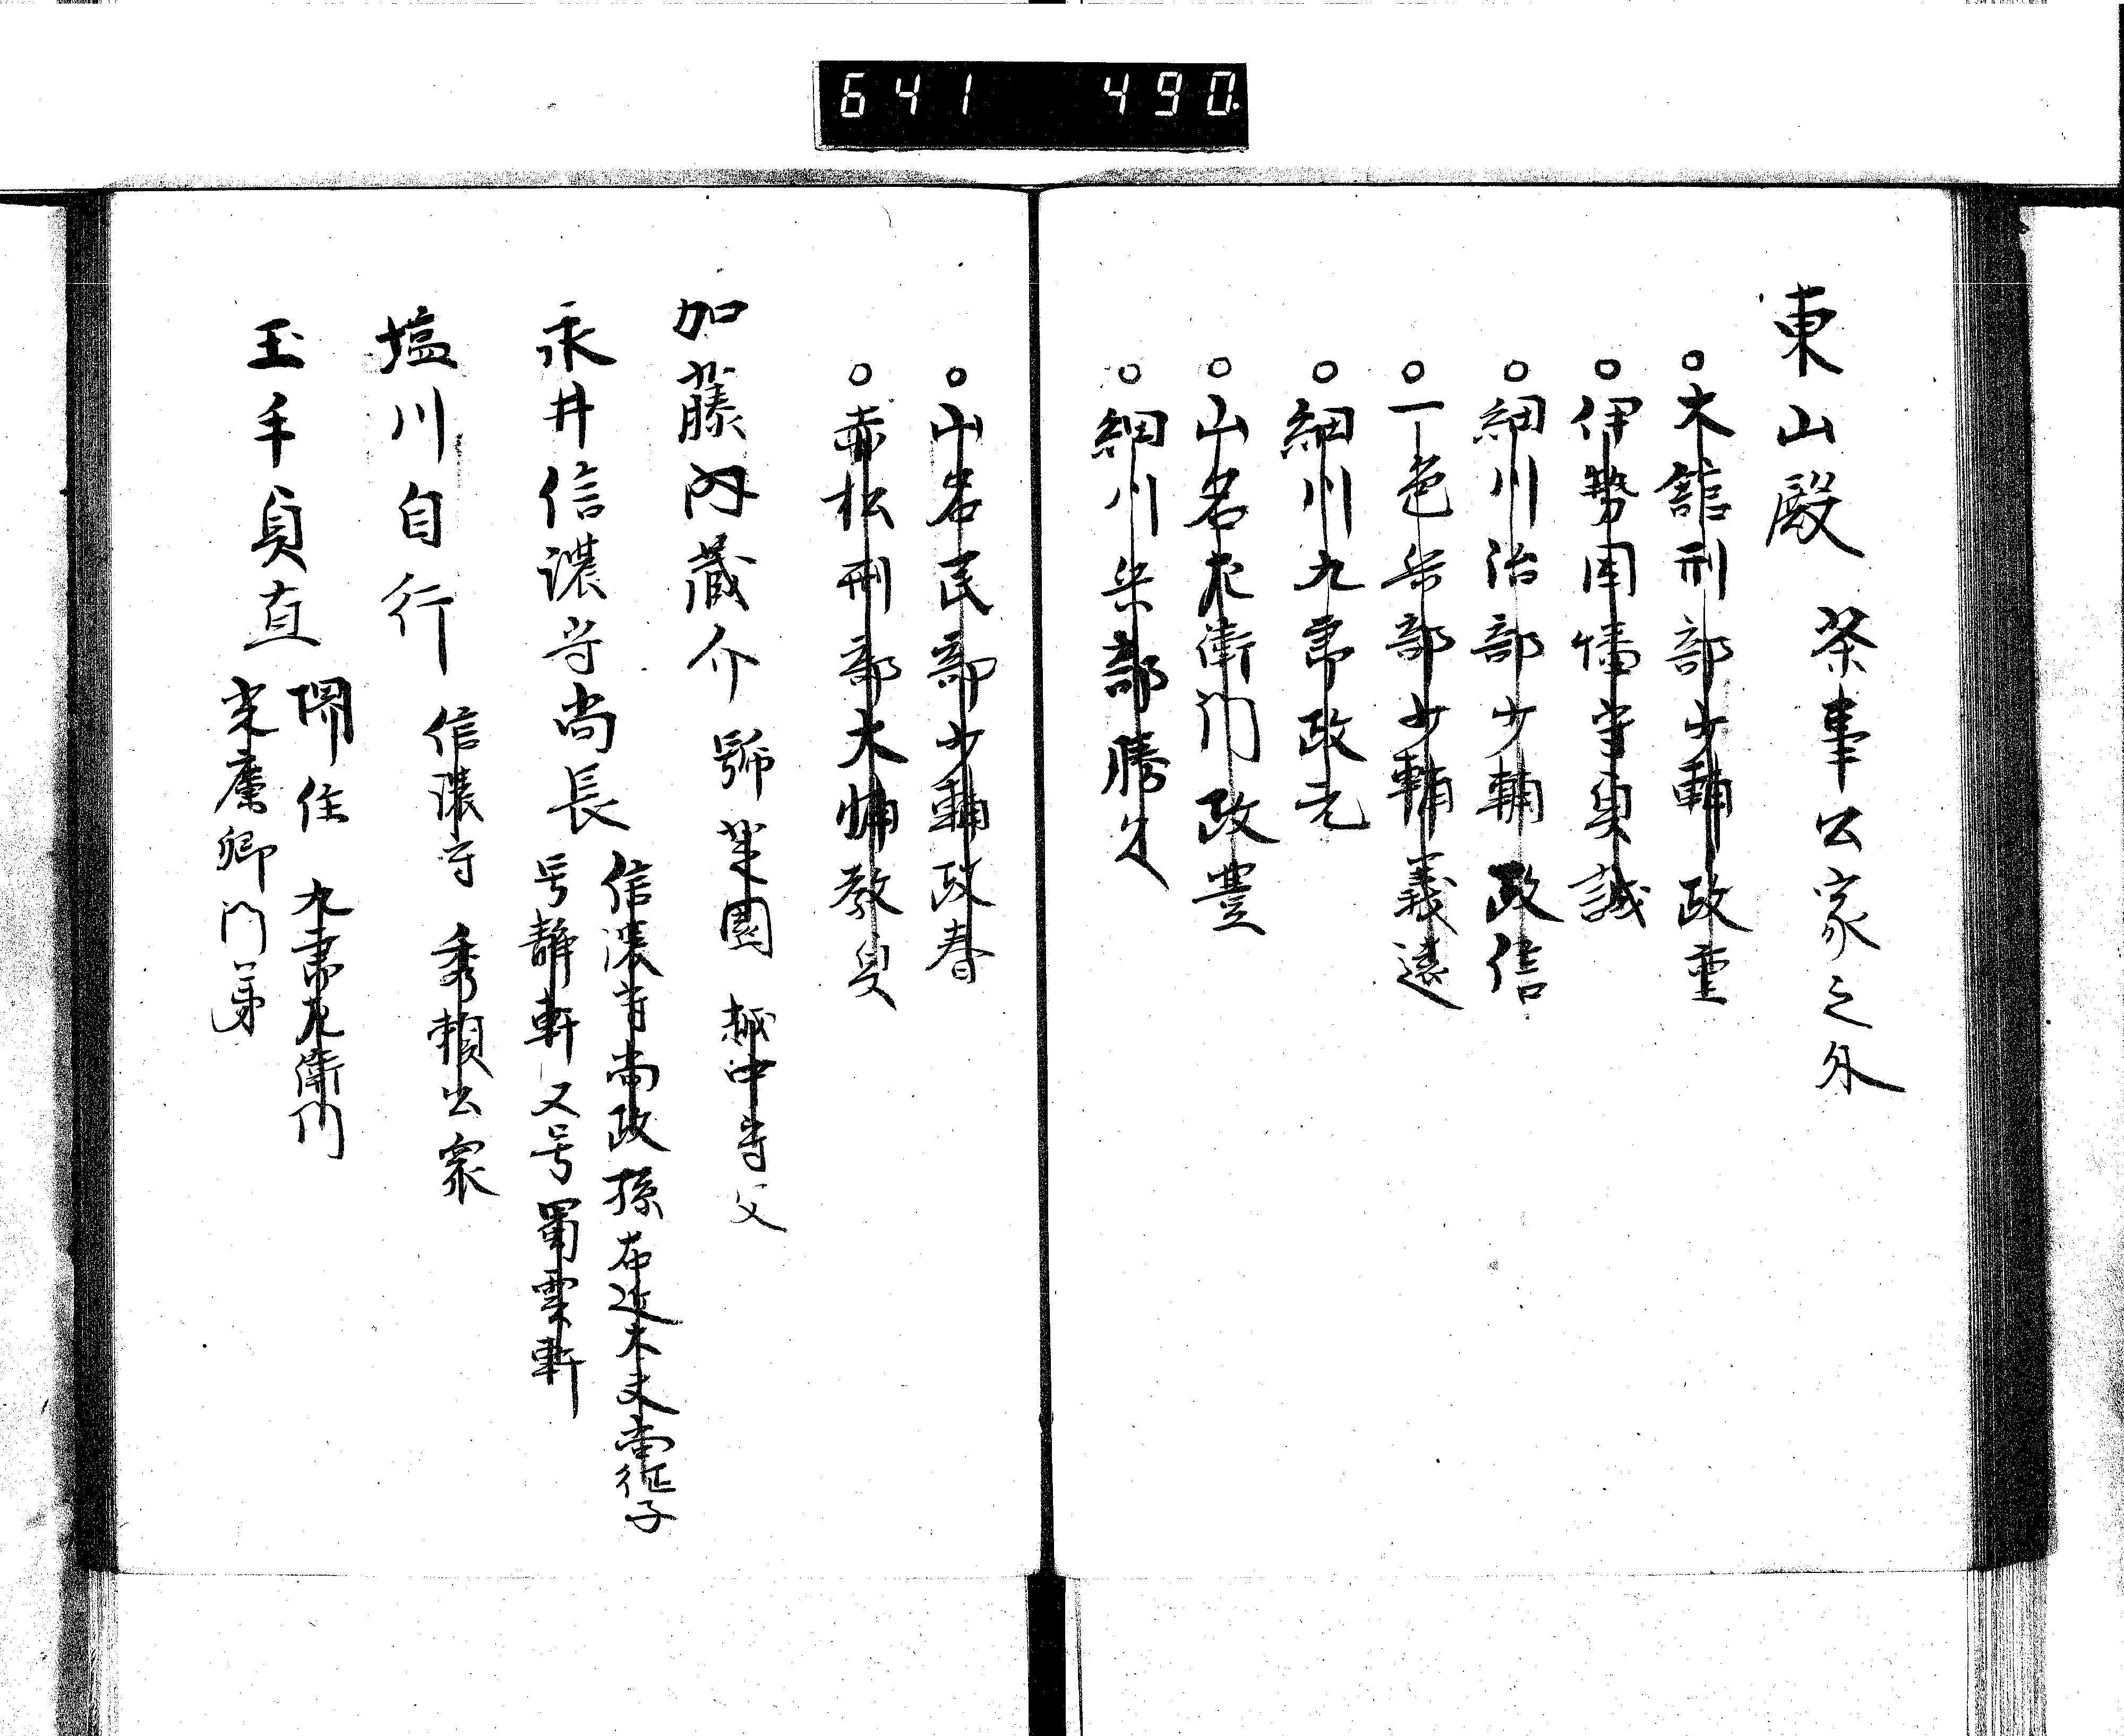 641 490
東山殿 茶事公家之外
○大舘刑部少輔政重
○伊勢因幡守貞誠
○細川治部少輔政信
○一色兵部少輔義遠
○細川九郎政元
○山名左衛門政豊
○細川兵部勝久
○山名民部少輔政春
○赤松刑部大輔教貞
加藤内蔵介 號 菜園 越中守父
永井信濃守尚長
信濃守尚政孫 右近大夫尚征子
号静軒 又号蜀雲軒
塩川自行 信濃守 秀頼公家
玉手貞直
堺住 九郎左衛門
光廣卿門弟